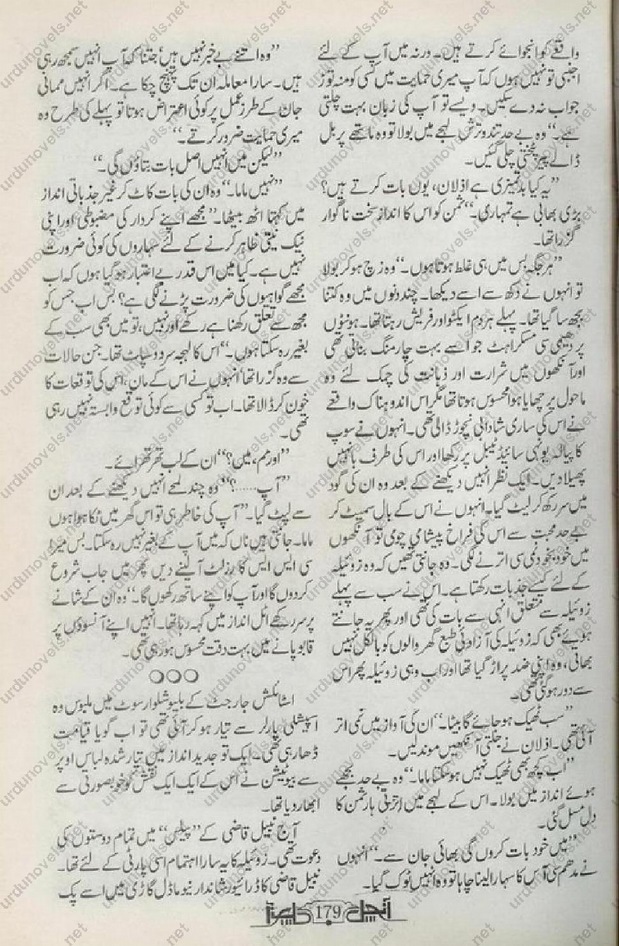 واقعے کو انجوائے کرتے ہیں۔ ورنہ میں آپ کے لئے
اجنبی تو نہیں ہوں کہ آپ میری حمایت میں کسی کو منہ توڑ
جواب نہ دے سکیں۔ ویسے تو آپ کی زبان بہت چلتی
ہے۔“ وہ بے حد تند و ترش لہجے میں بولا تو وہ ماتھے پر بل
ڈالے پیر پٹختی چلی گئیں۔
”یہ کیا بدتمیزی ہے اذلان، یوں بات کرتے ہیں؟
بڑی بھابی ہے تمہاری۔“ ثمن کو اس کا انداز سخت ناگوار
گزرا تھا۔
”ہر جگہ بس میں ہی غلط ہوتا ہوں۔“ وہ زچ ہو کر بولا
تو انہوں نے دکھ سے اسے دیکھا۔ چند دنوں میں وہ کتنا
بجھ سا گیا تھا۔ پہلے ہر دم ایکٹو اور فریش رہتا تھا۔ ہونٹوں
پر دھیمی سی مسکراہٹ جو اسے بہت چارمنگ بناتی تھی
اور آنکھوں میں شرارت اور ذہانت کی چمک لئے وہ
ماحول پر چھایا ہوا محسوس ہوتا تھا مگر اس اندوہناک واقعے
نے اس کی ساری شادابی نچوڑ ڈالی تھی۔ انہوں نے سوپ
کا پیالہ یونہی سائیڈ ٹیبل پر رکھا اور اس کی طرف بانہیں
پھیلا دیں۔ ایک نظر انہیں دیکھنے کے بعد وہ ان کی گود
میں سر رکھ کر لیٹ گیا۔ انہوں نے اس کے بال سمیٹ کر
بے حد محبت سے اس کی فراخ پیشانی چومی تو آنکھوں
میں خود بخود نمی سی اترنے لگی۔ وہ جانتی تھیں کہ وہ زوئیلہ
کے لئے کیسے جذبات رکھتا ہے۔ اس نے سب سے پہلے
زوئیلہ سے متعلق انہی سے بات کی تھی اور پھر یہ جانتے
ہوئے بھی کہ زوئیلہ کی آزاد طبع گھر والوں کو بالکل نہیں
بھائی، وہ اپنی ضد پر اڑ گیا تھا اور اب وہی زوئیلہ پھر اس
سے دور ہو گئی تھی۔
”سب ٹھیک ہو جائے گا بیٹا۔“ ان کی آواز میں نمی اتر
آئی تھی۔ اذلان نے جلتی آنکھیں موند لیں۔
”اب کچھ بھی ٹھیک نہیں ہو سکتا ماما۔“ وہ بے حد بجھے
ہوئے انداز میں بولا۔ اس کے لہجے میں اترتی ہار ثمن کا
دل مسل گئی۔
”میں خود بات کروں گی بھائی جان سے۔“ انہوں
نے مدھم سی آس کا سہارا لینا چاہا تو وہ انہیں ٹوک گیا۔
”وہ اتنے بے خبر نہیں ہیں جتنا کہ آپ انہیں سمجھ رہی
ہیں۔ سارا معاملہ ان تک پہنچ چکا ہے۔ اگر انہیں ممانی
جان کے طرز عمل پر کوئی اعتراض ہوتا تو پہلے کی طرح وہ
میری حمایت ضرور کرتے۔“
”لیکن میں انہیں اصل بات بتاؤں گی۔“
”نہیں ماما۔“ وہ ان کی بات کاٹ کر غیر جذباتی انداز
میں کہتا اٹھ بیٹھا۔ ”مجھے اپنے کردار کی مضبوطی اور اپنی
نیک نیتی ظاہر کرنے کے لئے سہاروں کی کوئی ضرورت
نہیں ہے۔ کیا میں اس قدر بے اعتبار ہو گیا ہوں کہ اب
مجھے گواہوں کی ضرورت پڑنے لگی ہے؟ بس اب جس کو
مجھ سے تعلق رکھنا ہے رکھے اور نہیں، تو میں بھی سب کے
بغیر رہ سکتا ہوں۔“ اس کا لہجہ سرد و سپاٹ تھا۔ جن حالات
سے وہ گزرا تھا انہوں نے اس کے مان، اس کی توقعات کا
خون کر ڈالا تھا۔ اب تو کسی سے کوئی توقع وابستہ نہیں رہی
تھی۔
”اور ہم، میں؟“ ان کے لب تھرتھرائے۔
”آپ.....؟“ وہ چند لمحے انہیں دیکھنے کے بعد ان
سے لپٹ گیا۔ ”آپ کی خاطر ہی تو اس گھر میں ٹکا ہوا ہوں
ماما۔ جانتی ہیں ناں کہ میں آپ کے بغیر نہیں رہ سکتا۔ بس میرا
سی ایس ایس کا رزلٹ آلینے دیں پھر میں جاب شروع
کر دوں گا اور آپ کو اپنے ساتھ رکھوں گا۔“ وہ ان کے شانے
پر سر رکھے اٹل انداز میں کہہ رہا تھا۔ انہیں اپنے آنسوؤں پر
قابو پانے میں بہت دقت محسوس ہو رہی تھی۔
○○○
اسٹائلش جارجٹ کے بلیو شلوار سوٹ میں ملبوس وہ
اسپیشلی پارلر سے تیار ہو کر آئی تھی تو اب گویا قیامت
ڈھا رہی تھی۔ ایک تو جدید انداز میں تیار شدہ لباس اوپر
سے بیوٹیشن نے اس کے ایک ایک نقش کو خوبصورتی سے
ابھار دیا تھا۔
آج نبیل قاضی کے ”پیلس“ میں تمام دوستوں کی
دعوت تھی۔ زوئیلہ کا یہ سارا اہتمام اسی پارٹی کے لئے تھا۔
نبیل قاضی کا ڈرائیور شاندار نیو ماڈل گاڑی میں اسے پک
آنچل 179
urdunovels.net